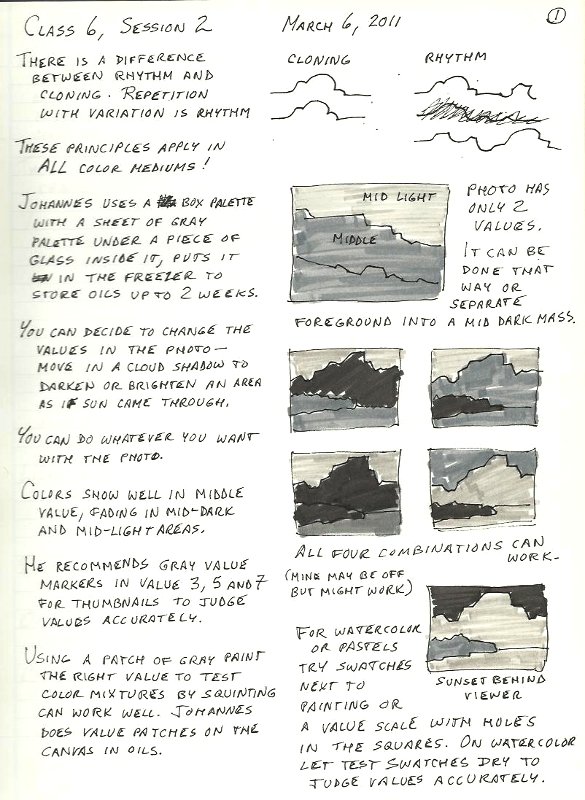 Class 6, Session 2
March 6, 2011
1
There is a difference
between rhythm and
cloning. Repetition
with variation is rhythm
These principles apply in
ALL color mediums!
Johannes uses a box palette
with a sheet of gray
palette under a piece of
glass inside it, puts it
in the freezer to
store oils up to 2 weeks.
You can decide to change the
values in the photo –
move in a cloud shadow to
darken or brighten an area
as if sun came through.
You can do whatever you want
with the photo.
Colors show well in middle
value, fading in mid-dark
and mid-light areas.
He recommends gray value
markers in value 3, 5 and 7
for thumbnails to judge
values accurately.
Using a patch of gray paint
the right value to test
color mixtures by squinting
can work well. Johannes
does value patches on the
canvas in oils.
Cloning
Rhythm
Mid light
Middle
Photo has
only 2
values.
It can be
done that
way or
separate
foreground into a mid dark mass.
All four combinations can
work.
(Mine may be off
but might work)
For watercolor
or pastels
try swatches
next to
painting or
a value scale with holes
in the squares. On watercolor
let test swatches dry to
judge values accurately.
Sunset behind
viewer